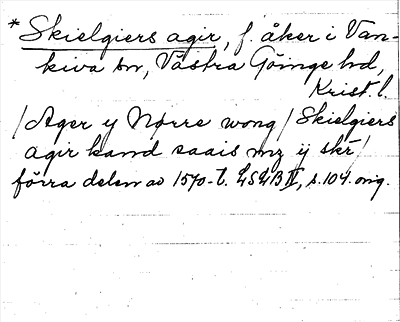 * Skielgiers agir, f. åker i Van-
kiva sn, Västra Göinge hd,
Krist. l.
/ Ager y Nørre wong / Skielgiers
agir kand saais mz ij skr /
förra delen av 1570-t. LSLB II, s. 104. orig.